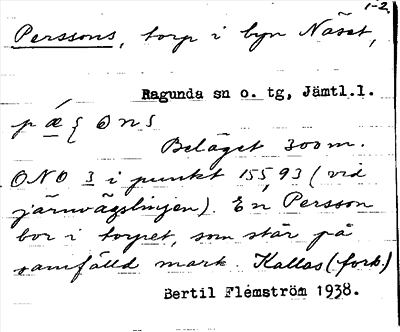 1-2.
Perssons, torp i byn Näset,
Ragunda sn o. tg, Jämtl.l.
Beläget 300 m.
ONO 3 i punkt 15593 (vid
järnvägslinjen). En Persson
bor i torpet, som står på
samfälld mark. Kallas (fork.)
Bertil Flemström 1938.